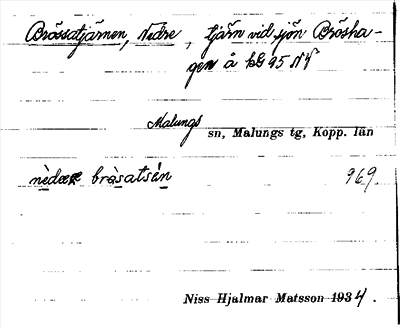 Brössatjärnen, Nedre, tjärn vid sjön Brösha-
gen å bl 95 NV
Malungs sn, Malungs tg, Kopp. län
969.
Niss Hjalmar Matsson 1934.